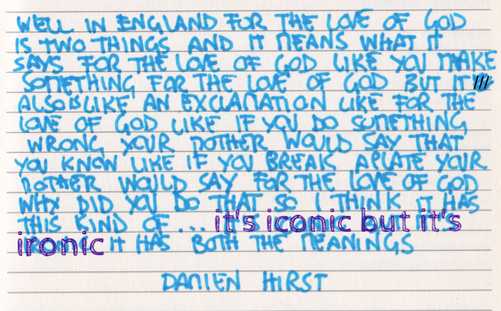 WELL IN ENGLAND FOR THE LOVE OF GOD
IS TWO THINGS AND IT MEANS WHAT IT
SAYS FOR THE LOVE OF GOD LIKE YOU MAKE
SOMETHING FOR THE LOVE OF GOD BUT IT
ALSO IS LIKE AN EXCLAMATION LIKE FOR THE
LOVE OF GOD LIKE IF YOU DO SOMETHING
WRONG YOUR MOTHER WOULD SAY THAT
YOU KNOW LIKE IF YOU BREAK A PLATE YOUR
MOTHER WOULD SAY FOR THE LOVE OF GOD
WHY DID YOU DO THAT SO I THINK IT HAS
THIS KIND OF ... it's iconic but it's
ironic IT HAS BOTH THE MEANINGS
DAMIEN HIRST